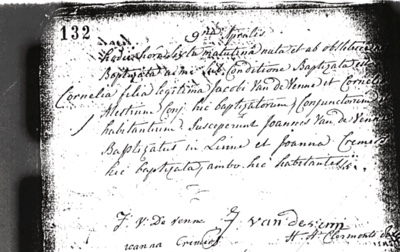 132
9na Aprilis
hodie hora sexta matutina nata et ab obstetrice
Baptizata a me sub Conditione Baptizata est
Cornelia filia legitima Jacobi Van de Venne et Cornelia
Conj. hic baptizatorum, Conjunctorum,
habitantium. Susceperunt Joannes Van de Venne
Baptizatus in Linne et Joanna Cremers
hic baptizata, ambo hic habitantes
J. V. De venne
J. van
Joanna Cremers
H. H. Clermonts